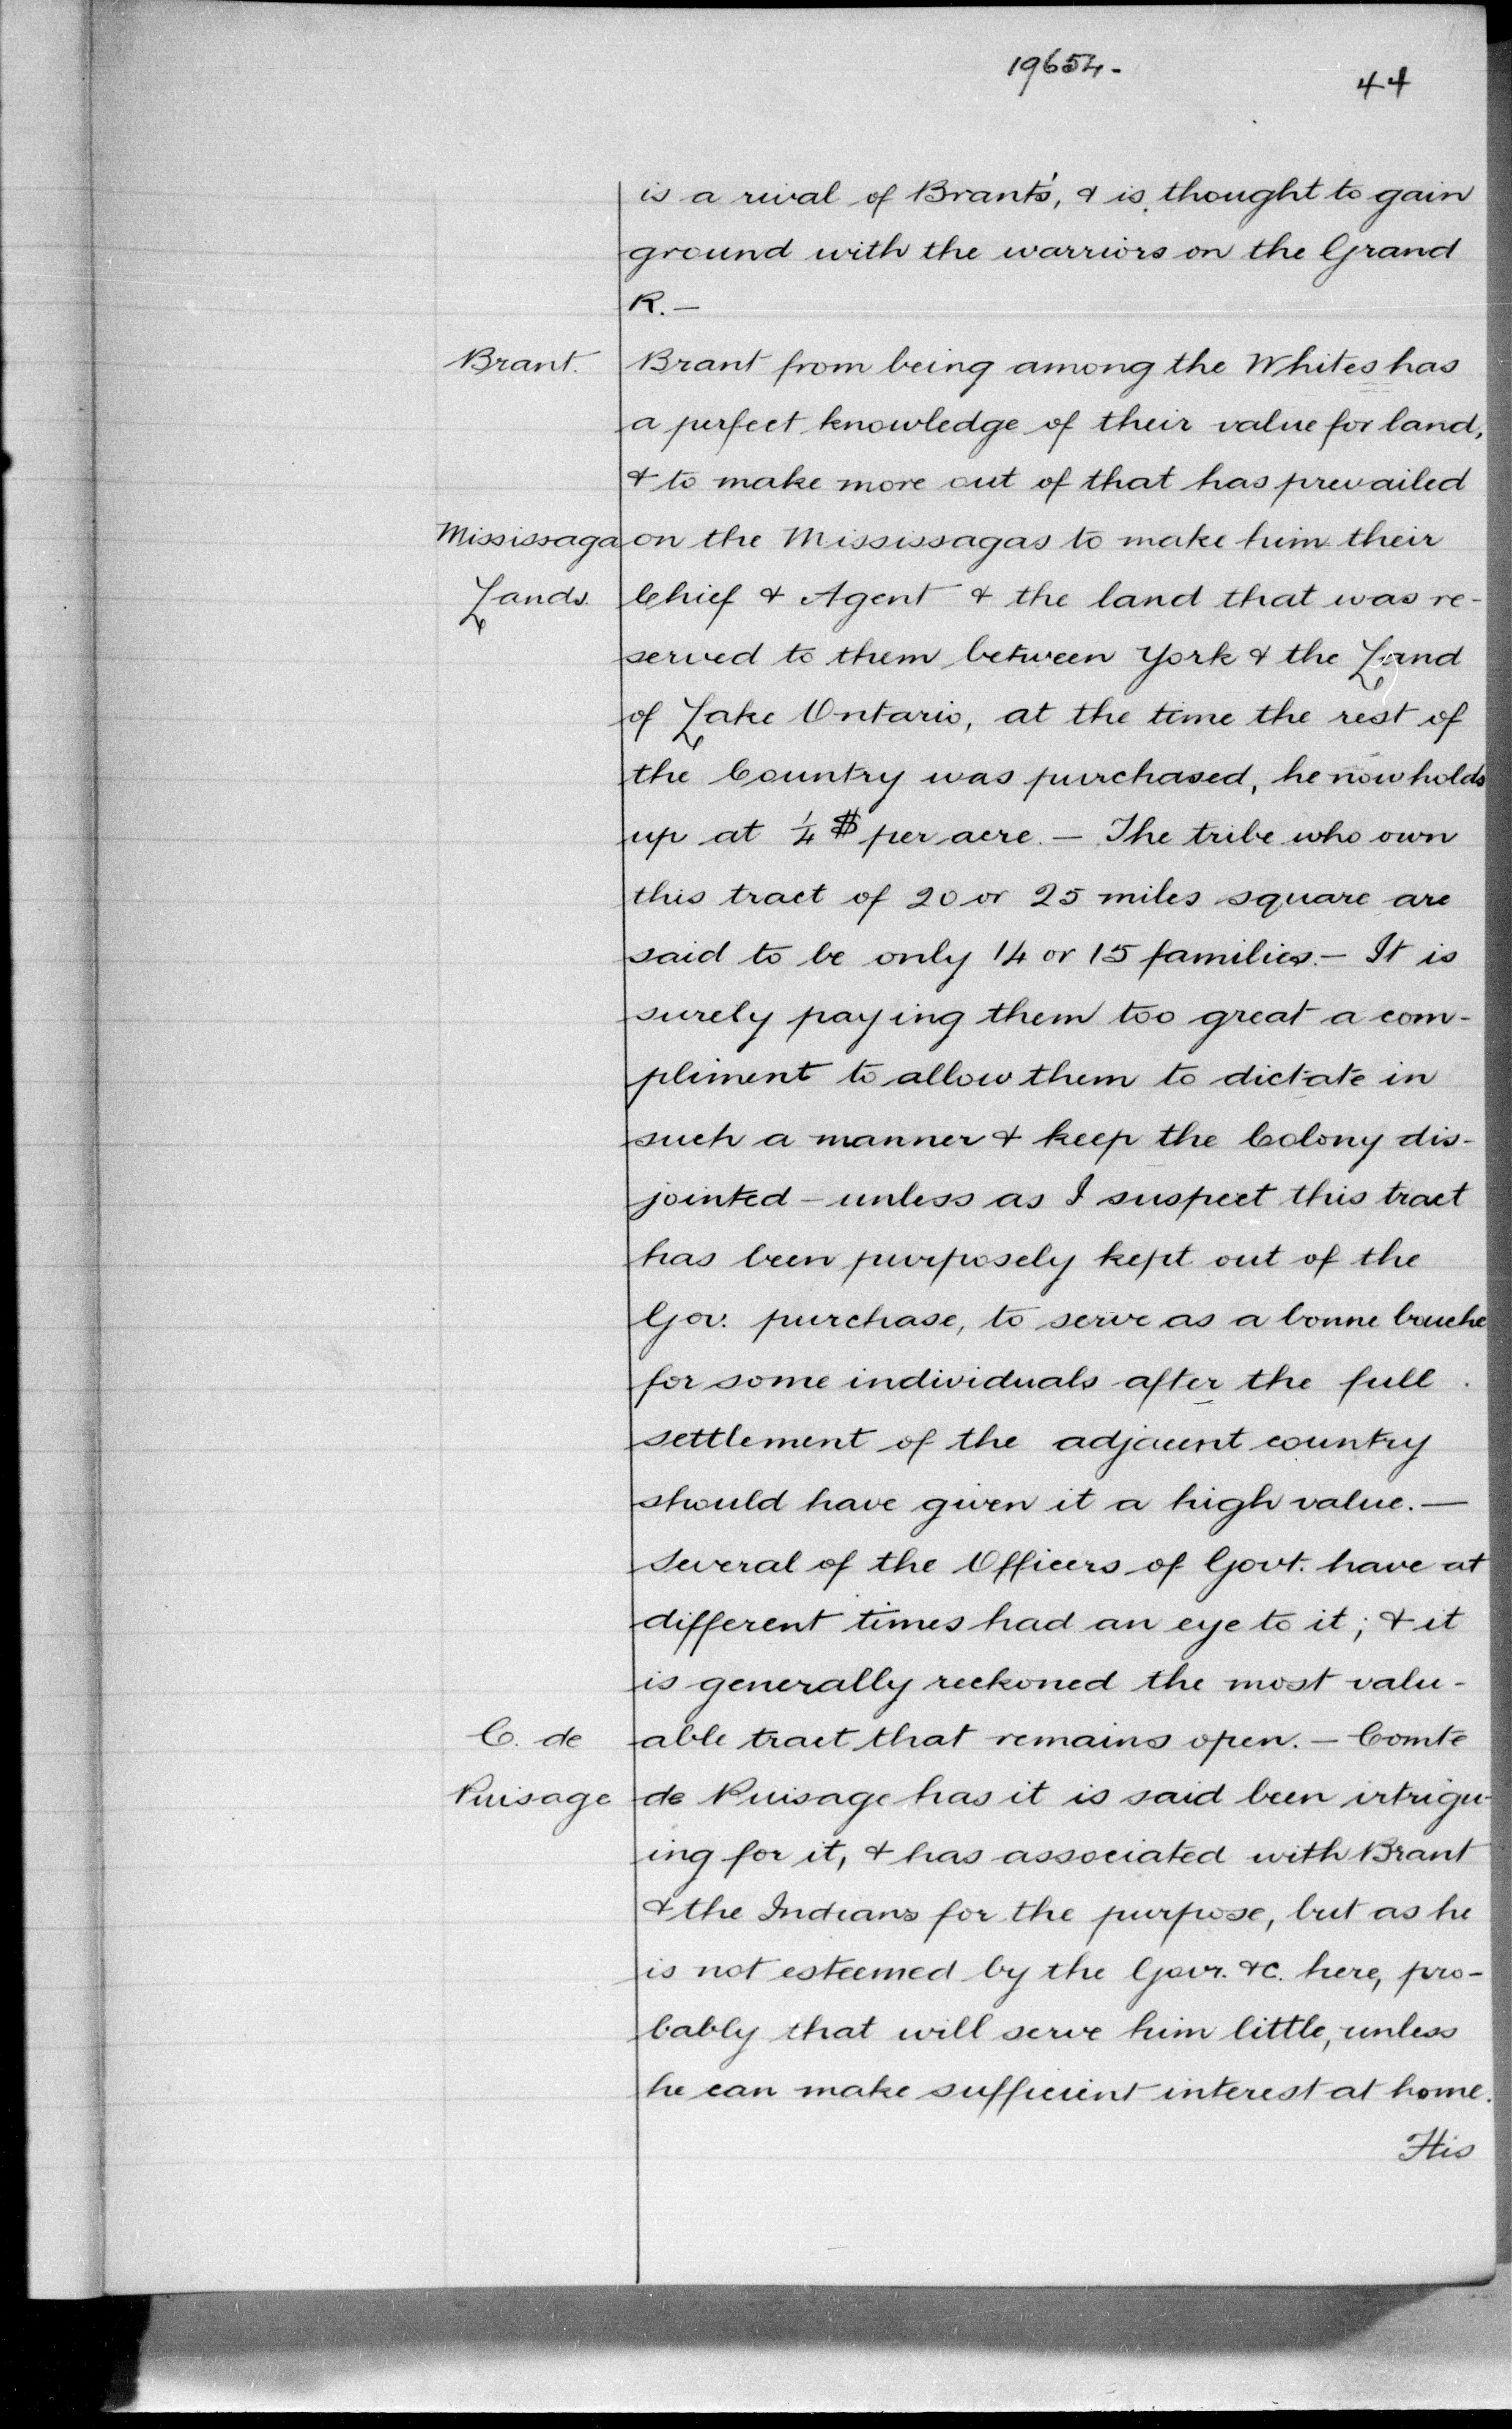 19654.-
44
is a rival of Brant's, & is thought to gain
ground with the warriors on the Grand
R.—
Brant.
Brant from being among the Whites has
a perfect knowledge of their value for land,
& to make more out of that has prevailed
Mississaga
on the Mississagas to make him their
Lands.
Chief & Agent & the land that was re-
served to them between York & the Land
of Lake Ontario, at the time the rest of
the Country was purchased, he now holds
up at ¼ $ per acre.— The tribe who own
this tract of 20 or 25 miles square are
said to be only 14 or 15 families.— It is
surely paying them too great a com-
pliment to allow them to dictate in
such a manner & keep the Colony dis-
jointed - unless as I suspect this tract
has been purposely kept out of the
Gov. purchase, to serve as a bonne bouche
for some individuals after the full
settlement of the adjacent country
should have given it a high value.—
Several of the Officers of Govt. have at
different times had an eye to it; & it
is generally reckoned the most valu-
C. de
able tract that remains open.— Comte
Puisage
de Puisage has it is said been intrigu-
ing for it, & has associated with Brant
& the Indians for the purpose, but as he
is not esteemed by the Govr. &c. here, pro-
bably that will serve him little, unless
he can make sufficient interest at home.
His